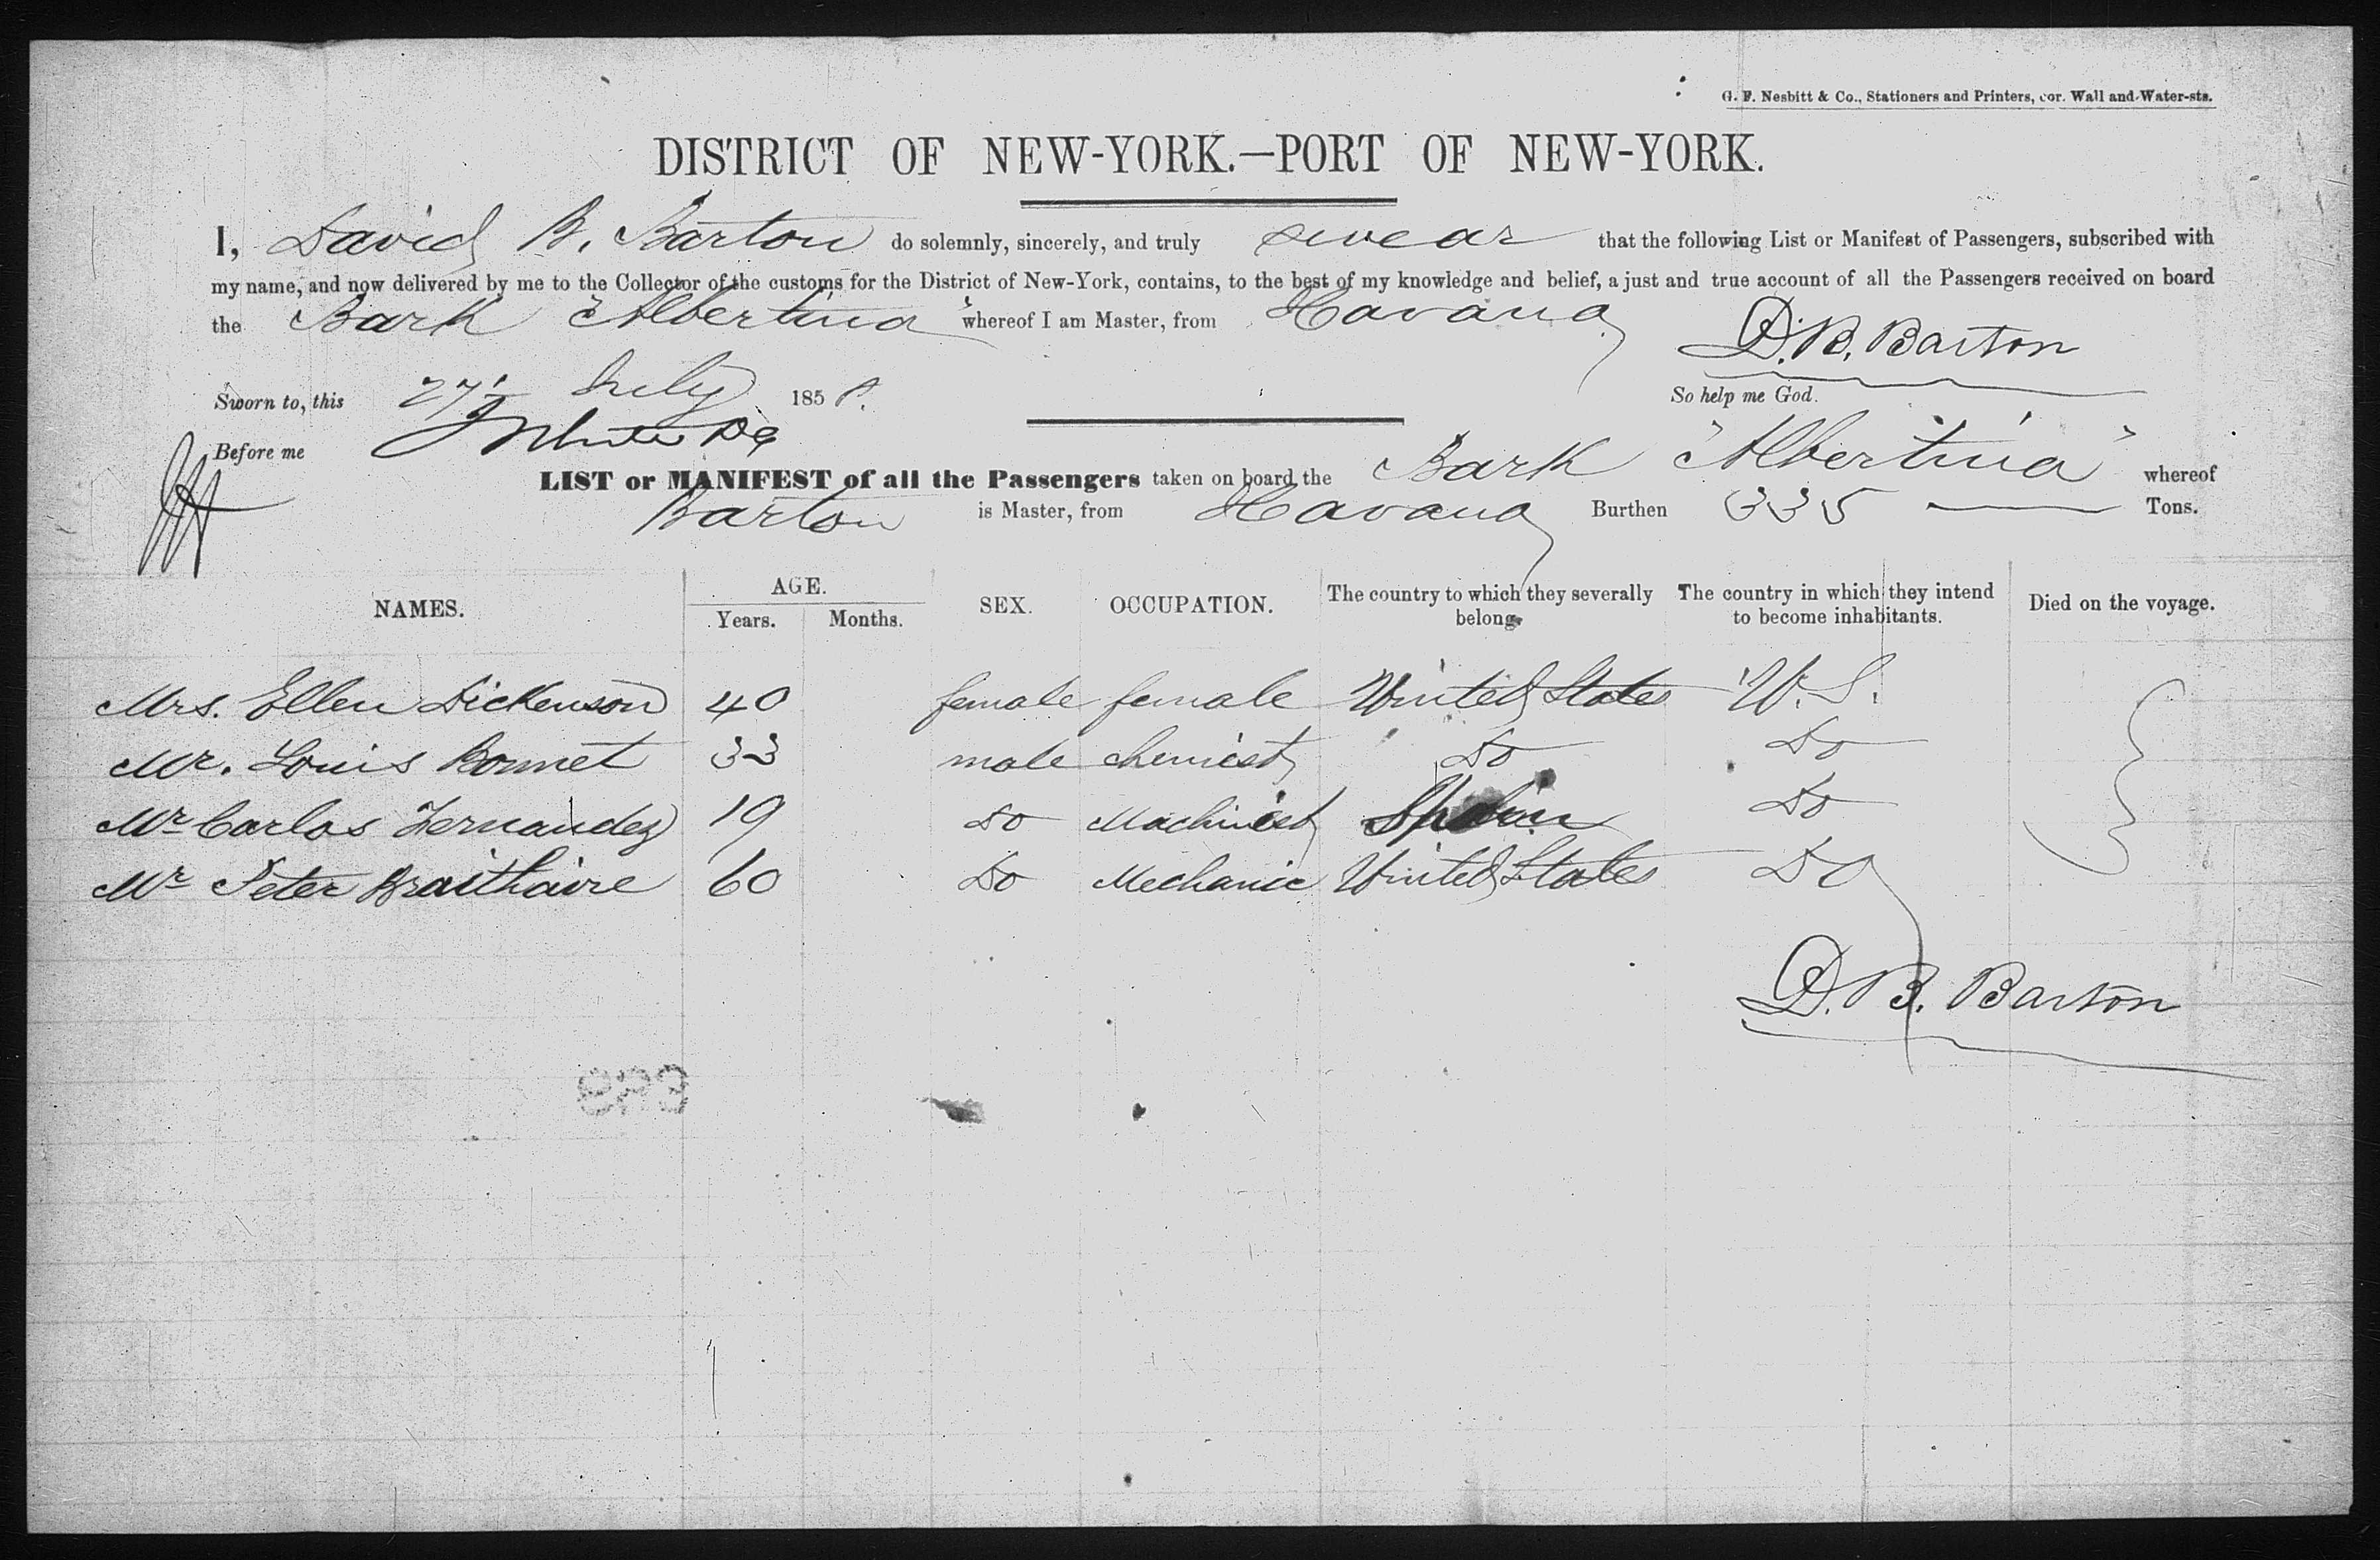 G. F. Nesbitt & Co., Stationers and Printers, cor. Wall and Water-sts.
DISTRICT OF NEW-YORK.—PORT OF NEW-YORK.
I, David B. Barton do solemnly, sincerely, and truly swear that the following List or Manifest of Passengers, subscribed with
my name, and now delivered by me to the Collector of the customs for the District of New-York, contains, to the best of my knowledge and belief, a just and true account of all the Passengers received on board
the Bark "Albertina" whereof I am Master, from Havana
D. B. Barton
Sworn to, this 27 July 1858. So help me God.
Before me
LIST or MANIFEST of all the Passengers taken on board the Bark "Albertina" whereof
Barton is Master, from Havana Burthen 335 Tons.
NAMES. AGE. Years. Months. SEX. OCCUPATION. The country to which they severally belong. The country in which they intend to become inhabitants. Died on the voyage.
Mrs. Ellen Dickenson 40 female female United States U.S.
Mr. Louis Bonnet 33 male chemist Do Do
Mr Carlos Fernandez 19 Do Machinist Spain Do
Mr Peter 60 Do Mechanic United States Do
D. B. Barton